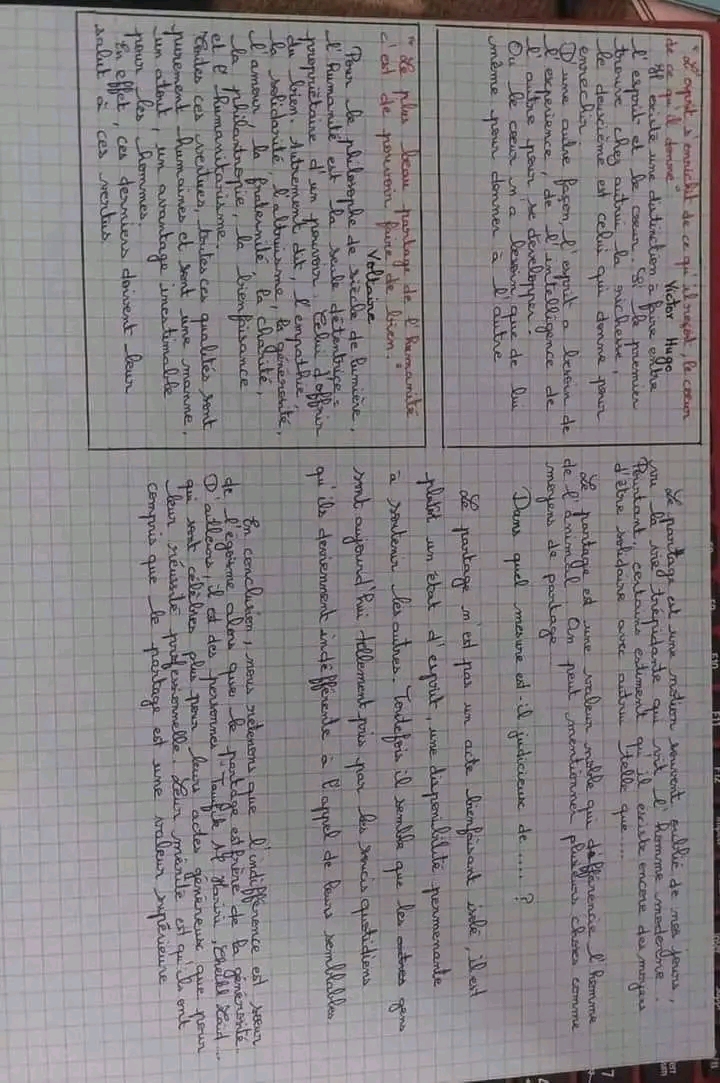 "L'esprit s'enrichit de ce qu'il reçoit, le cœur
de ce qu'il donne"
Victor Hugo
Il existe une distinction à faire entre
l'esprit et le cœur. Si le premier
trouve chez autrui la richesse,
le deuxième est celui qui donne pour
enrichir
D'une autre façon, l'esprit a besoin de
l'expérience, de l'intelligence de
l'autre pour se développer.
Or le cœur n'a besoin que de lui
même pour donner à l'autre
"Le plus beau partage de l'humanité
c'est de pouvoir faire de bien."
Voltaire
Pour le philosophe de siècle de lumière,
l'humanité est la seule détentrice,
propriétaire d'un pouvoir : Celui d'offrir
du bien. Autrement dit, l'empathie,
la solidarité, l'altruisme, la générosité,
l'amour, la fraternité, la charité,
la philantropie, la bienfaisance
et l'humanitarisme.
Toutes ces vertues, toutes ces qualités sont
purement humaines et sont une manne,
un atout, un avantage inestimable
pour les hommes.
En effet, ces derniers doivent leur
salut à ces vertus.
Le partage est une notion souvent oublié de nos jours,
vu la vie trépidante qui vit l'homme moderne.
Pourtant, certains estiment qu'il existe encore des moyens
d'être solidaire avec autrui telle que...
Le partage est une valeur noble qui différencie l'homme
de l'animal. On peut mentionner plusieurs choses comme
moyens de partage
Dans quel mesure est-il judicieuse de ..... ?
Le partage n'est pas un acte bienfaisant isolé, il est
plutôt un état d'esprit, une disponibilité permanante
à soutenir les autres. Toutefois il semble que les gens
sont aujourd'hui tellement pris par les soucis quotidiens
qu'ils deviennent indéfférente à l'appel de leurs semblables
En conclusion, nous retenons que l'indifférence est sœur
de l'égoïsme alors que le partage est frère de la générosité.
D'ailleurs, il est des personnes Hariri, Cheikh Zaid...
qui sont célèbres plus pour leurs actes généreux que pour
leur réussite professionnelle. Leur mérite est qu'ils ont
compris que le partage est une valeur supérieure